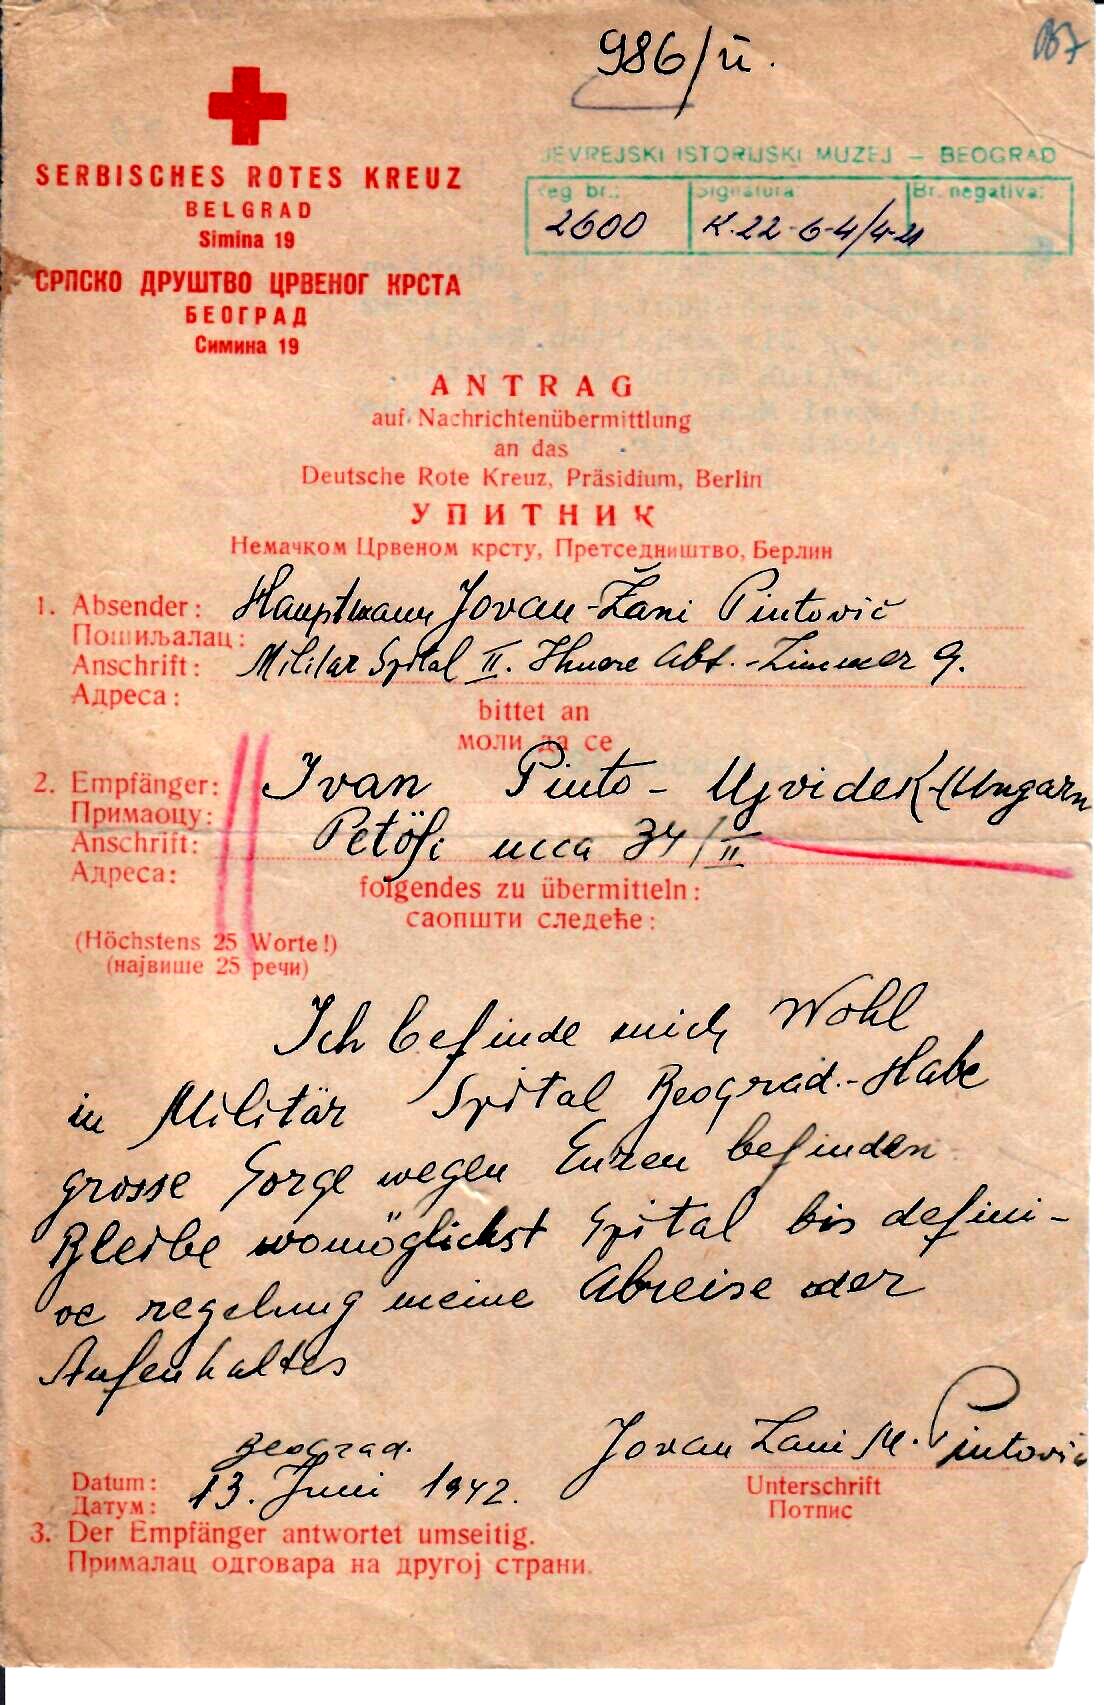 986/II.
067
SERBISCHES ROTES KREUZ
BELGRAD
Simina 19
СРПСКО ДРУШТВО ЦРВЕНОГ КРСТА
БЕОГРАД
Симина 19
JEVREJSKI ISTORIJSKI MUZEJ – BEOGRAD
Reg br.: Signatura: Br. negativa:
2600 K.22-6-4/4-21
ANTRAG
auf Nachrichtenübermittlung
an das
Deutsche Rote Kreuz, Präsidium, Berlin
УПИТНИК
Немачком Црвеном крсту, Претседништво, Берлин
1. Absender: Hauptmann Jovan-Žani Pintović
Пошиљалац:
Anschrift: Militar Spital II. Ihnere Abt.-Zimmer 9.
Адреса:
bittet an
моли да се
2. Empfänger: Ivan Pinto - Ujvidek-(Ungarn
Примаоцу:
Anschrift: Petöfi ucca 34/II
Адреса:
folgendes zu übermitteln:
саопшти следеће:
(Höchstens 25 Worte!)
(највише 25 речи)
Ich befinde mich Wohl
in Militär Spital Beograd.-Habe
grosse Sorge wegen Euren befinden
Bleibe womöglichst Spital bis defini-
ve regelung meine Abreise oder
Aufenhaltes
Beograd.
Datum: 13. Juni 1942.
Датум:
Jovan Žani M. Pintović
Unterschrift
Потпис
3. Der Empfänger antwortet umseitig.
Прималац одговара на другој страни.